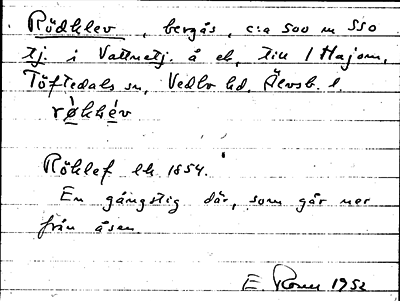 Rödklev, bergås, c:a 500 m SSO
tj. i Vattnetj. å ek, till 1 Hajom,
Töftedals sn, Vedbo hd, Älvsb. l.
røkkév
Röklef ek 1854.
En gångstig där, som går ner
från åsen
E. 1952